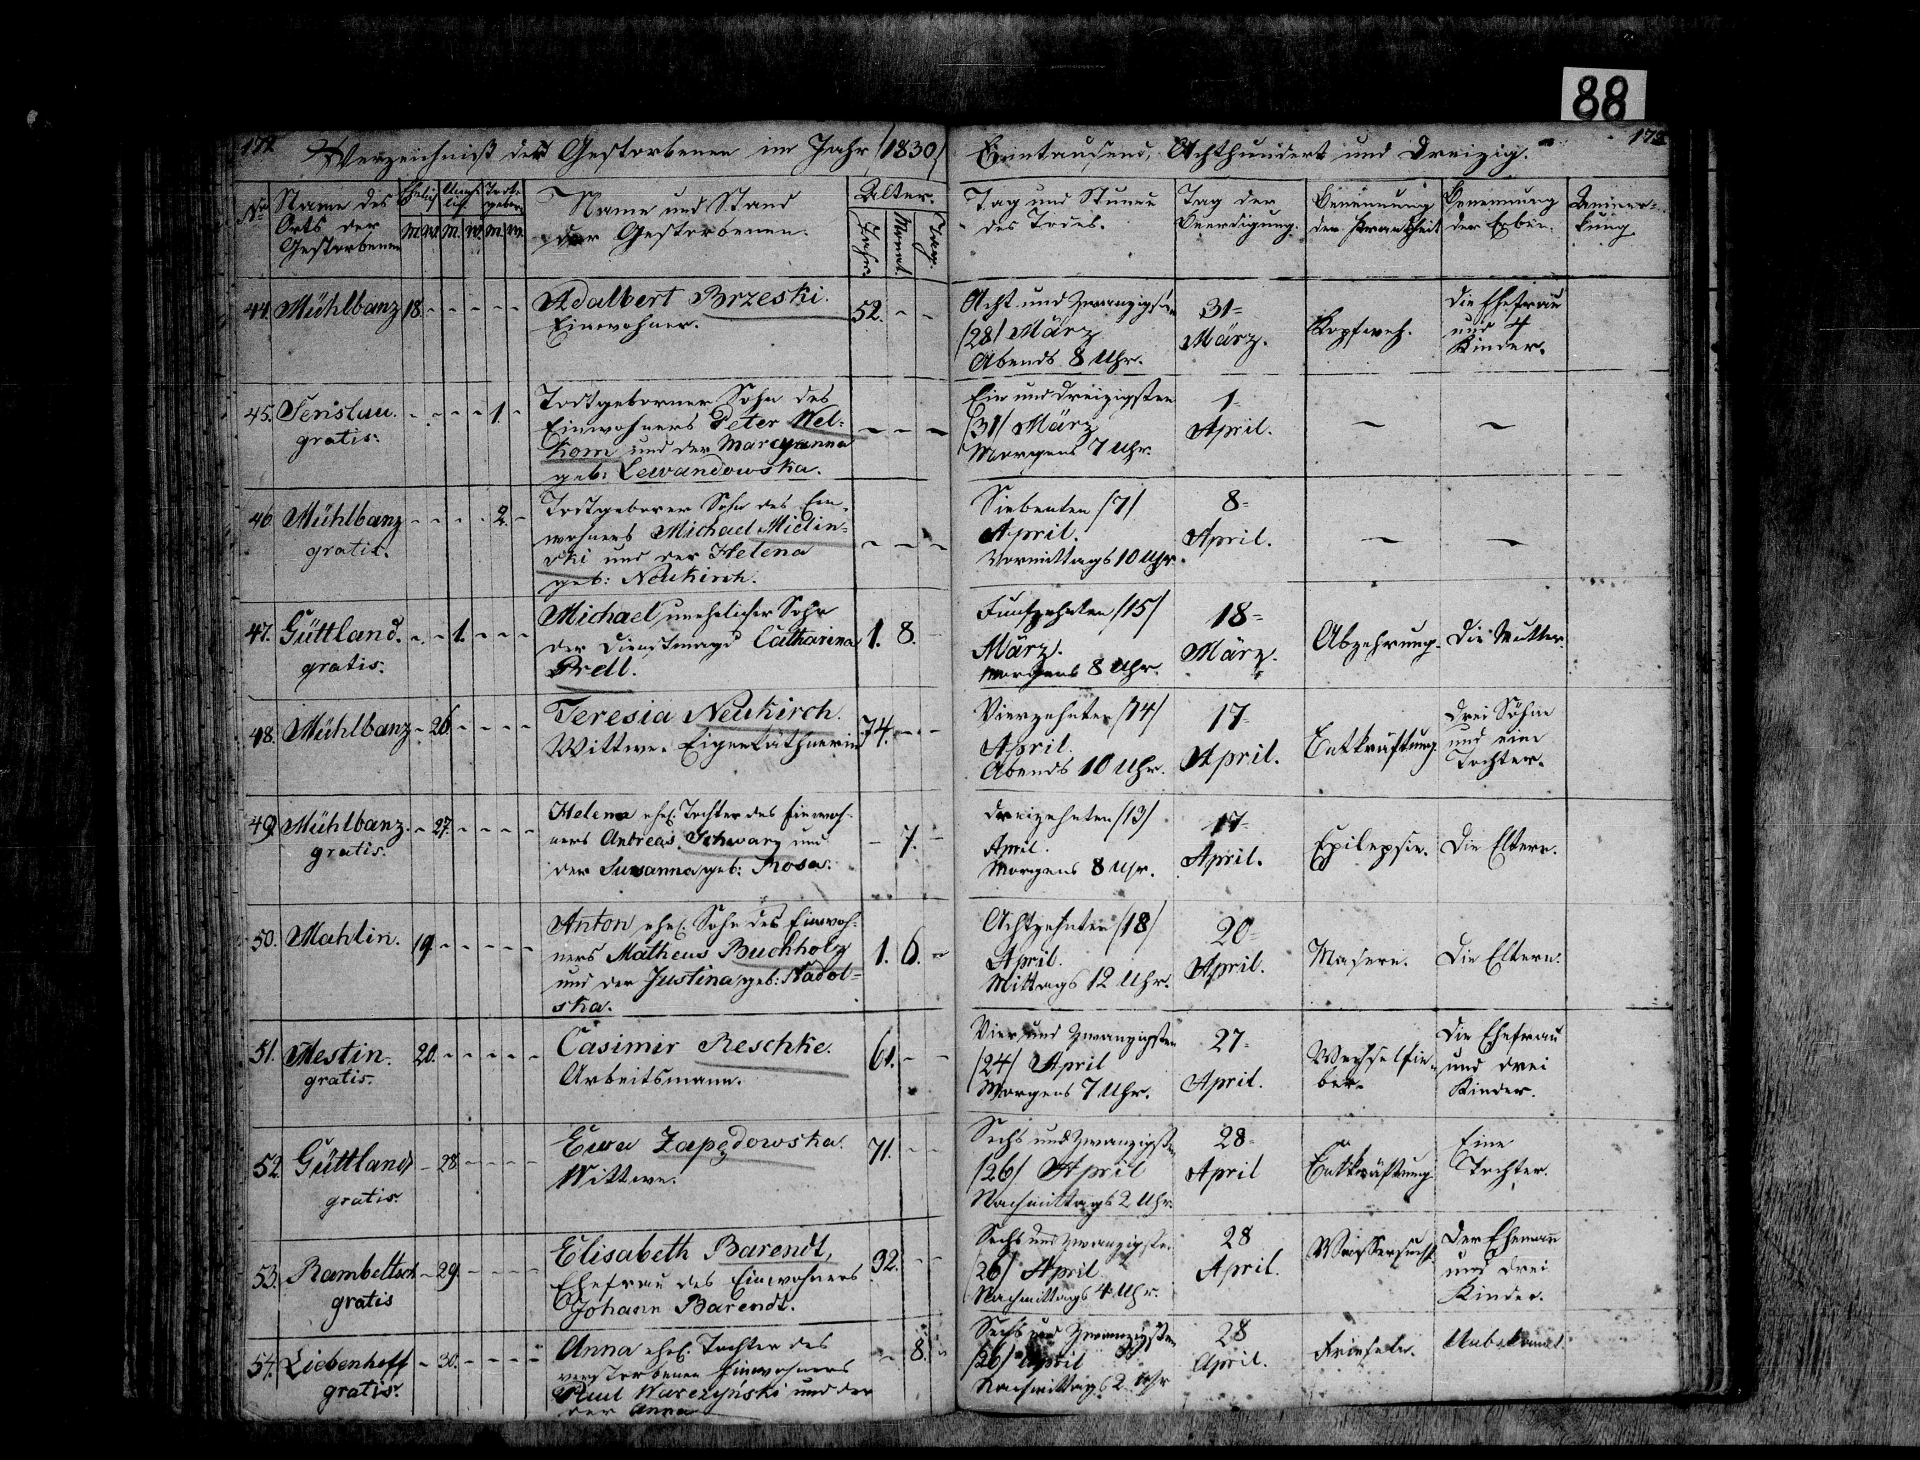 88
172
Verzeichniß der Gestorbenen im Jahr /1830/ Eintausend, Achthundert und Dreizig.
173
No
Name des Orts der Gestorbenen
Ehelich
Unehlich
Todtgebor.
M. W. M. W. M. W.
Name und Stand der Gestorbenen.
Alter.
Jahre Monat. Tage.
Tag und Stunde des Todes.
Tag der Beerdigung.
Benennung der Krankheit
Benennung der Erben.
Anmerkung.
44. Mühlbanz 18. - - - - -
Adalbert Brzeski.
Einwohner.
52. - -
Acht und Zwanzigsten
/28/ März
Abends 8 Uhr.
31=
März.
Kopfweh.
Die Ehefrau
und 4
Kinder.
45. Senslau. - - - - 1. -
gratis.
Todtgeborner Sohn des
Einwohners Peter Wel=
kom und der Marcyanna
geb: Lewandowska.
- - -
Ein und dreizigsten
/31/ März
Morgens 7 Uhr.
1=
April.
-
-
46. Mühlbanz - - - - 2. -
gratis.
Todtgeborner Sohn des Ein
wohners Michael Mielin=
ski und der Helena
geb: Neukirch.
- - -
Siebenten /7/
April.
Vormittags 10 Uhr.
8=
April.
-
-
47. Güttland. - - 1. - - -
gratis.
Michael, unehelicher Sohn
der Dienstmagd Catharina
Prell.
1. 8. -
Funfzehnten /15/
März.
Morgens 8 Uhr.
18=
März.
Abzehrung.
Die Mutter.
48. Mühlbanz - 26. - - - -
Teresia Neukirch.
Wittwe. Eigenkäthnerin
74. - -
Vierzehnten /14/
April.
Abends 10 Uhr.
17=
April.
Entkräftung.
Drei Söhne
und eine
Tochter.
49. Mühlbanz. - 27. - - - -
gratis.
Helena ehel. Tochter des Einwoh=
ners Andreas Schwarz und
der Susanna geb: Rosa.
- 7. -
Dreizehnten /13/
April.
Morgens 8 Uhr.
17=
April.
Epilepsie.
Die Eltern.
50. Mahlin. 19. - - - - -
Anton ehel. Sohn des Einwoh=
ners Matheus Buchholz
und der Justina geb: Nadol=
ska.
1. 6. -
Achtzehnten /18/
April.
Mittags 12 Uhr.
20=
April.
Masern.
Die Eltern.
51. Mestin. 20. - - - - -
gratis.
Casimir Reschke.
Arbeitsmann.
61. - -
Vier und Zwanzigsten
/24/ April
Morgens 7 Uhr.
27=
April.
Wechselfie=
ber.
Die Ehefrau
und drei
Kinder.
52. Güttland - 28. - - - -
gratis.
Ewa Zapędowska.
Wittwe.
71. - -
Sechs und Zwanzigsten
/26/ April
Nachmittags 2 Uhr.
28=
April
Entkräftung
Eine
Tochter.
53. Rambeltsch - 29. - - - -
gratis
Elisabeth Barendt,
Ehefrau des Einwohners
Johann Barendt.
32. - -
Sechs und Zwanzigsten
/26/ April
Nachmittags 4 Uhr.
28
April.
Wassersucht.
Der Ehemann
und drei
Kinder.
54. Liebenhoff - 30. - - - -
gratis.
Anna ehel. Tochter des
verstorbenen Einwohners
Paul Warczyński und der
der Anna
- 8. -
Sechs und Zwanzigsten
/26/ April
Nachmittags 2 Uhr
28
April.
Frieseln.
Unbekannt.